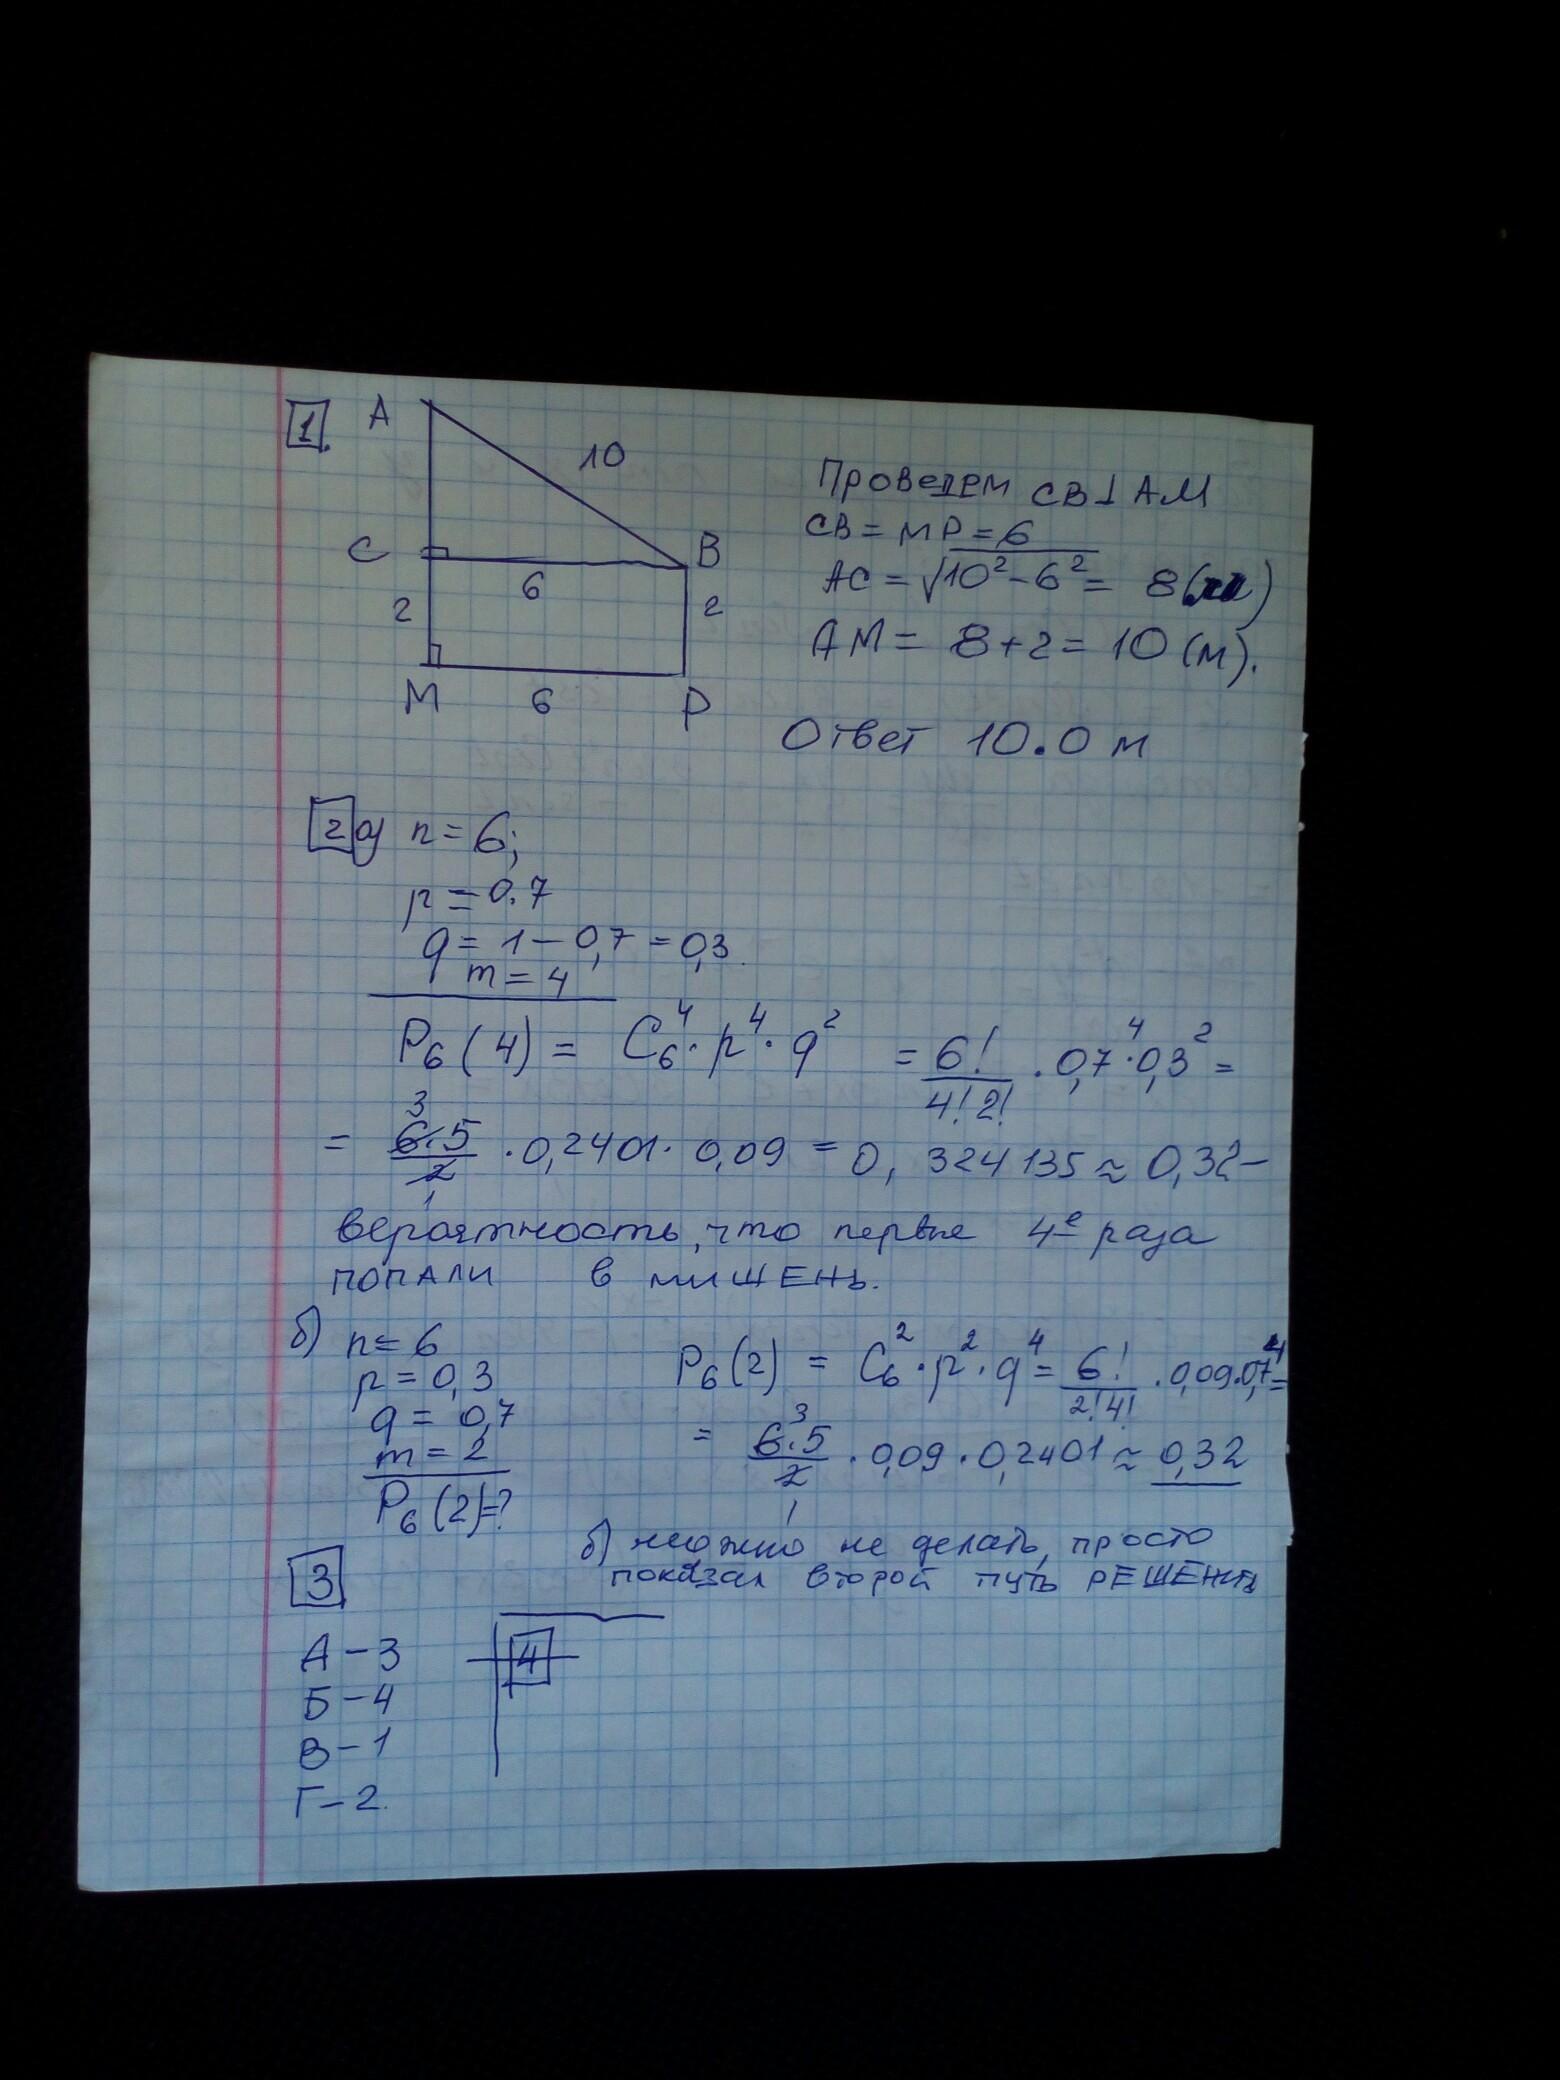 1.
A
10
C
B
6
2
2
M
6
P
Проведем CB⊥AM
CB = MP = 6
AC = √10² - 6² = 8 (м)
AM = 8 + 2 = 10 (м).
Ответ 10.0 м
2 а) n = 6;
p = 0.7
q = 1 - 0,7 = 0,3.
m = 4
P₆(4) = C₆⁴ · p⁴ · q² = 6!/4!2! · 0,7⁴ · 0,3² =
= 6·5/2 · 0,2401 · 0,09 = 0,324135 ≈ 0,32 -
3
1
вероятность, что первые 4ᵉ раза
попали в мишень.
б) n = 6
p = 0,3
q = 0,7
m = 2
P₆(2)=?
P₆(2) = C₆² · p² · q⁴ = 6!/2!4! · 0,09·0,7⁴ =
= 6·5/2 · 0,09 · 0,2401 ≈ 0,32
3
1
б) можно не делать, просто
показал второй путь РЕШЕНИЯ
3
А - 3
Б - 4
В - 1
Г - 2.
4